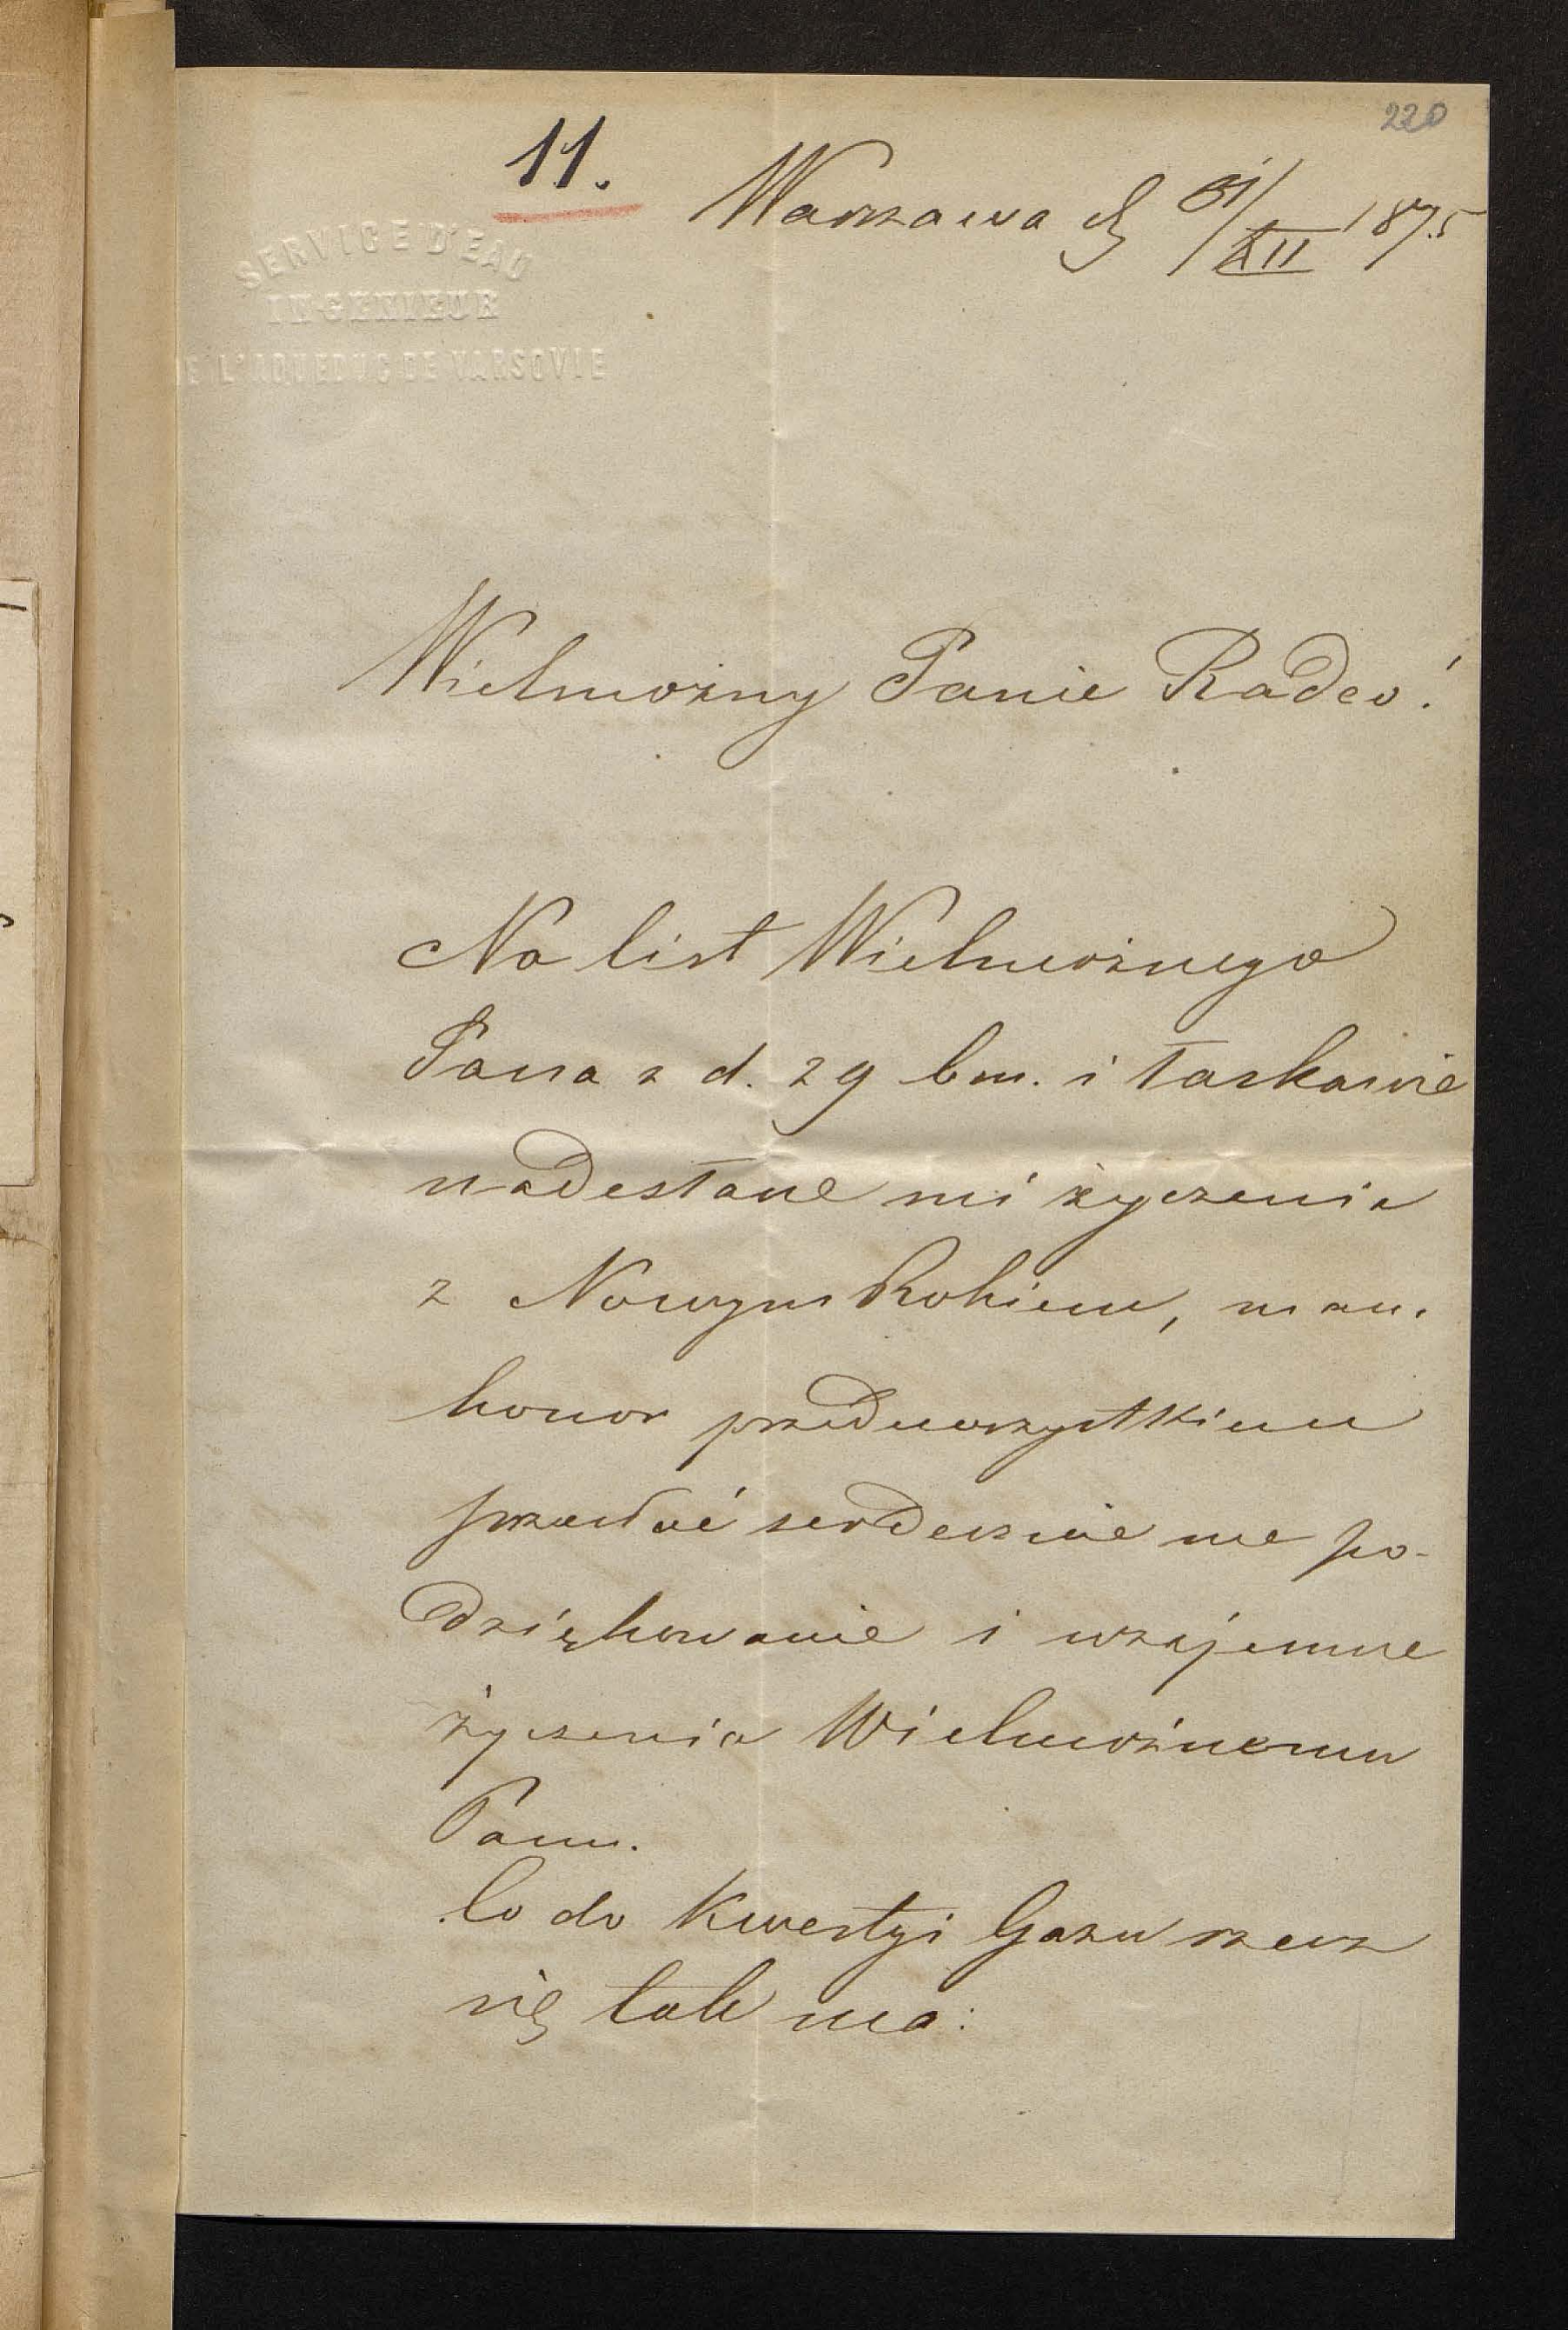 220
11.
Warszawa d 31/XII 1875
SERVICE D'EAU
INGENIEUR
DE L'AQUEDUC DE VARSOVIE
Wielmożny Panie Radco!
Na list Wielmożnego
Pana z d. 29 bm. i łaskawie
nadesłane mi życzenia
z Nowym Rokiem, mam
honor przedewszystkiem
przesłać serdeczne me po-
dziękowanie i wzajemne
życzenia Wielmożnemu
Panu.
Co do Kwestyi Gazu rzecz
się tak ma: